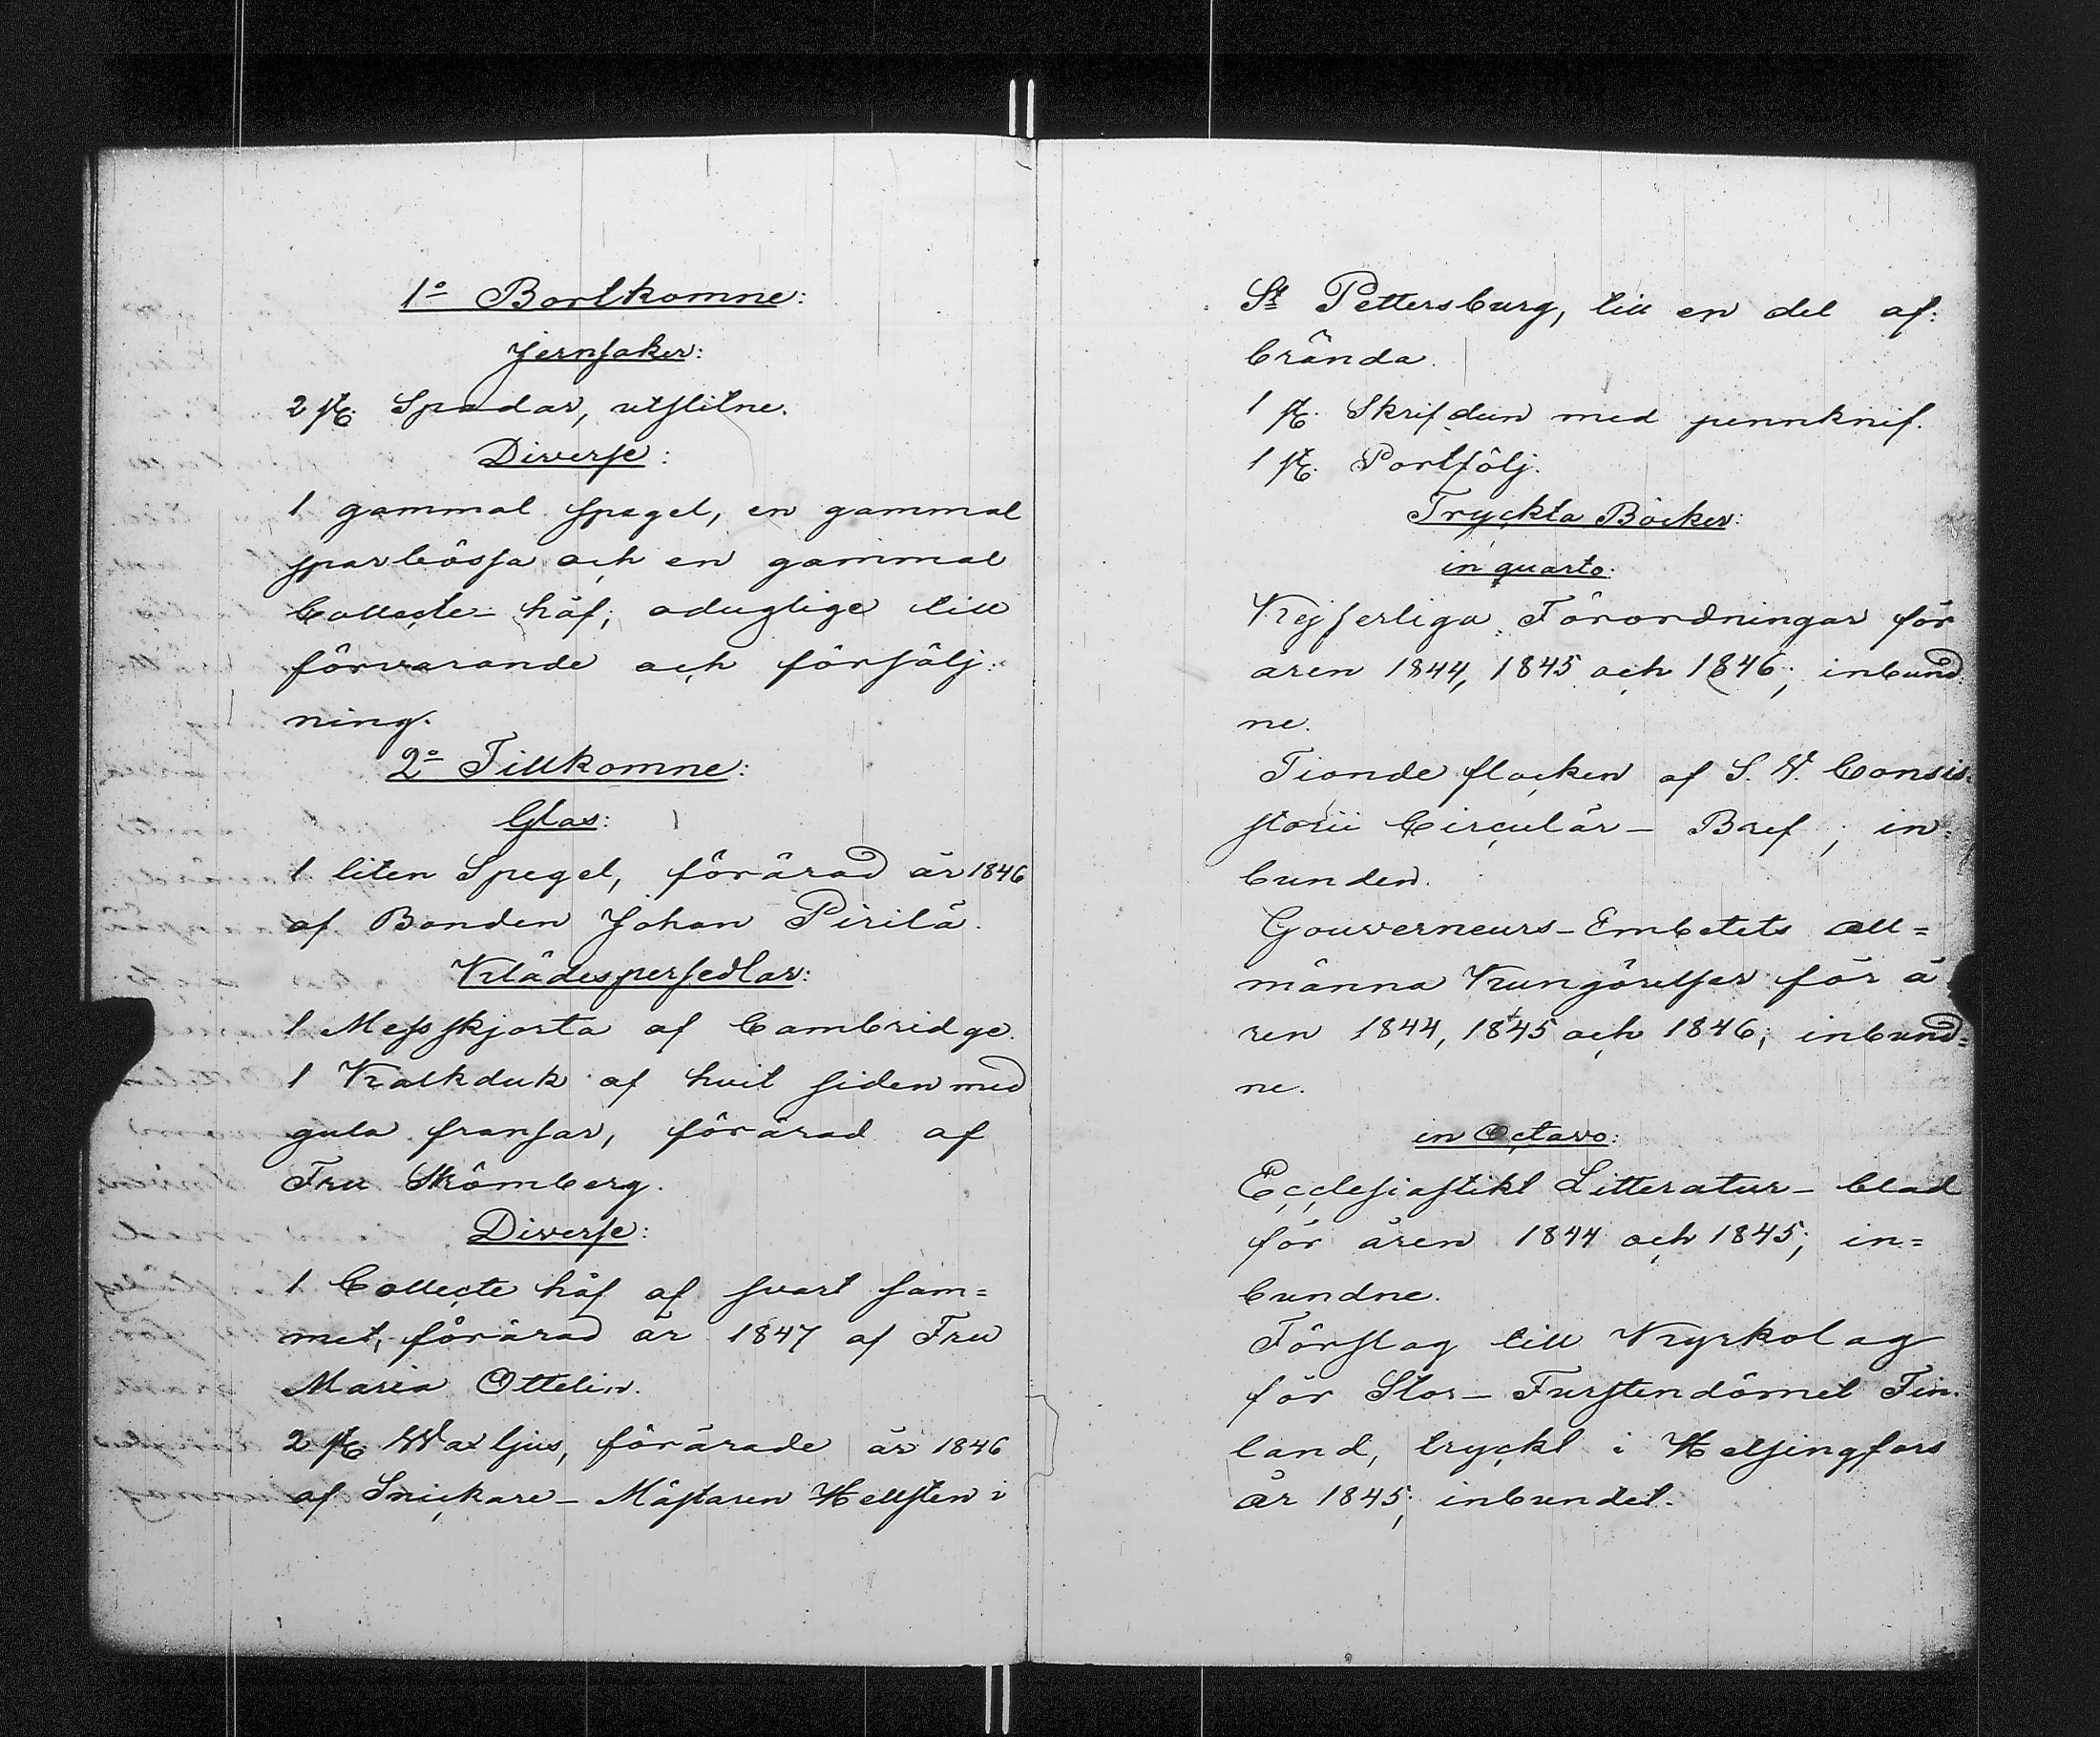 1o Bortkomne:
Jernsaker:
2 st. Spadar, utslitne.
Diverse:
1 gammal spegel, en gammal
sparbössa och en gammal
Collecte-håf; odugliga till
förvarande och försälj:
ning.
2o Tillkomne:
Glas:
1 liten Spegel, förärad år 1846
af Bonden Johan Pirilä.
Klädespersedlar:
1 Messkjorta af Cambridge.
1 Kalkduk af hvit siden med
gula fransar, förärad af
Fru Strömberg.
Diverse:
1 Collecte håf af svart sam=
met, förärad år 1847 af Fru
Maria Ottelin.
2 st. Waxljus, förärade år 1846
af Snickare-Mästaren Hellsten i
St Pettersburg, till en del af:
brända.
1 st. Skrifdun med pennknif.
1 st. Portfölj.
Tryckta Böcker:
in quarto:
Kejserliga Förordningar för
åren 1844, 1845 och 1846; inbund=
ne.
Tionde flocken af S. V. Consis=
storii Circulär-Bref; in=
bunden.
Gouverneurs-Embetets all=
männa Kungörelser för å
ren 1844, 1845 och 1846; inbund=
ne.
in Octavo:
Ecclesiastikt Litteratur-blad
för åren 1844 och 1845; in=
bundne.
Förslag till Kyrkolag
för Stor-Furstendömet Fin=
land, tryckt i Helsingfors
år 1845; inbundet.